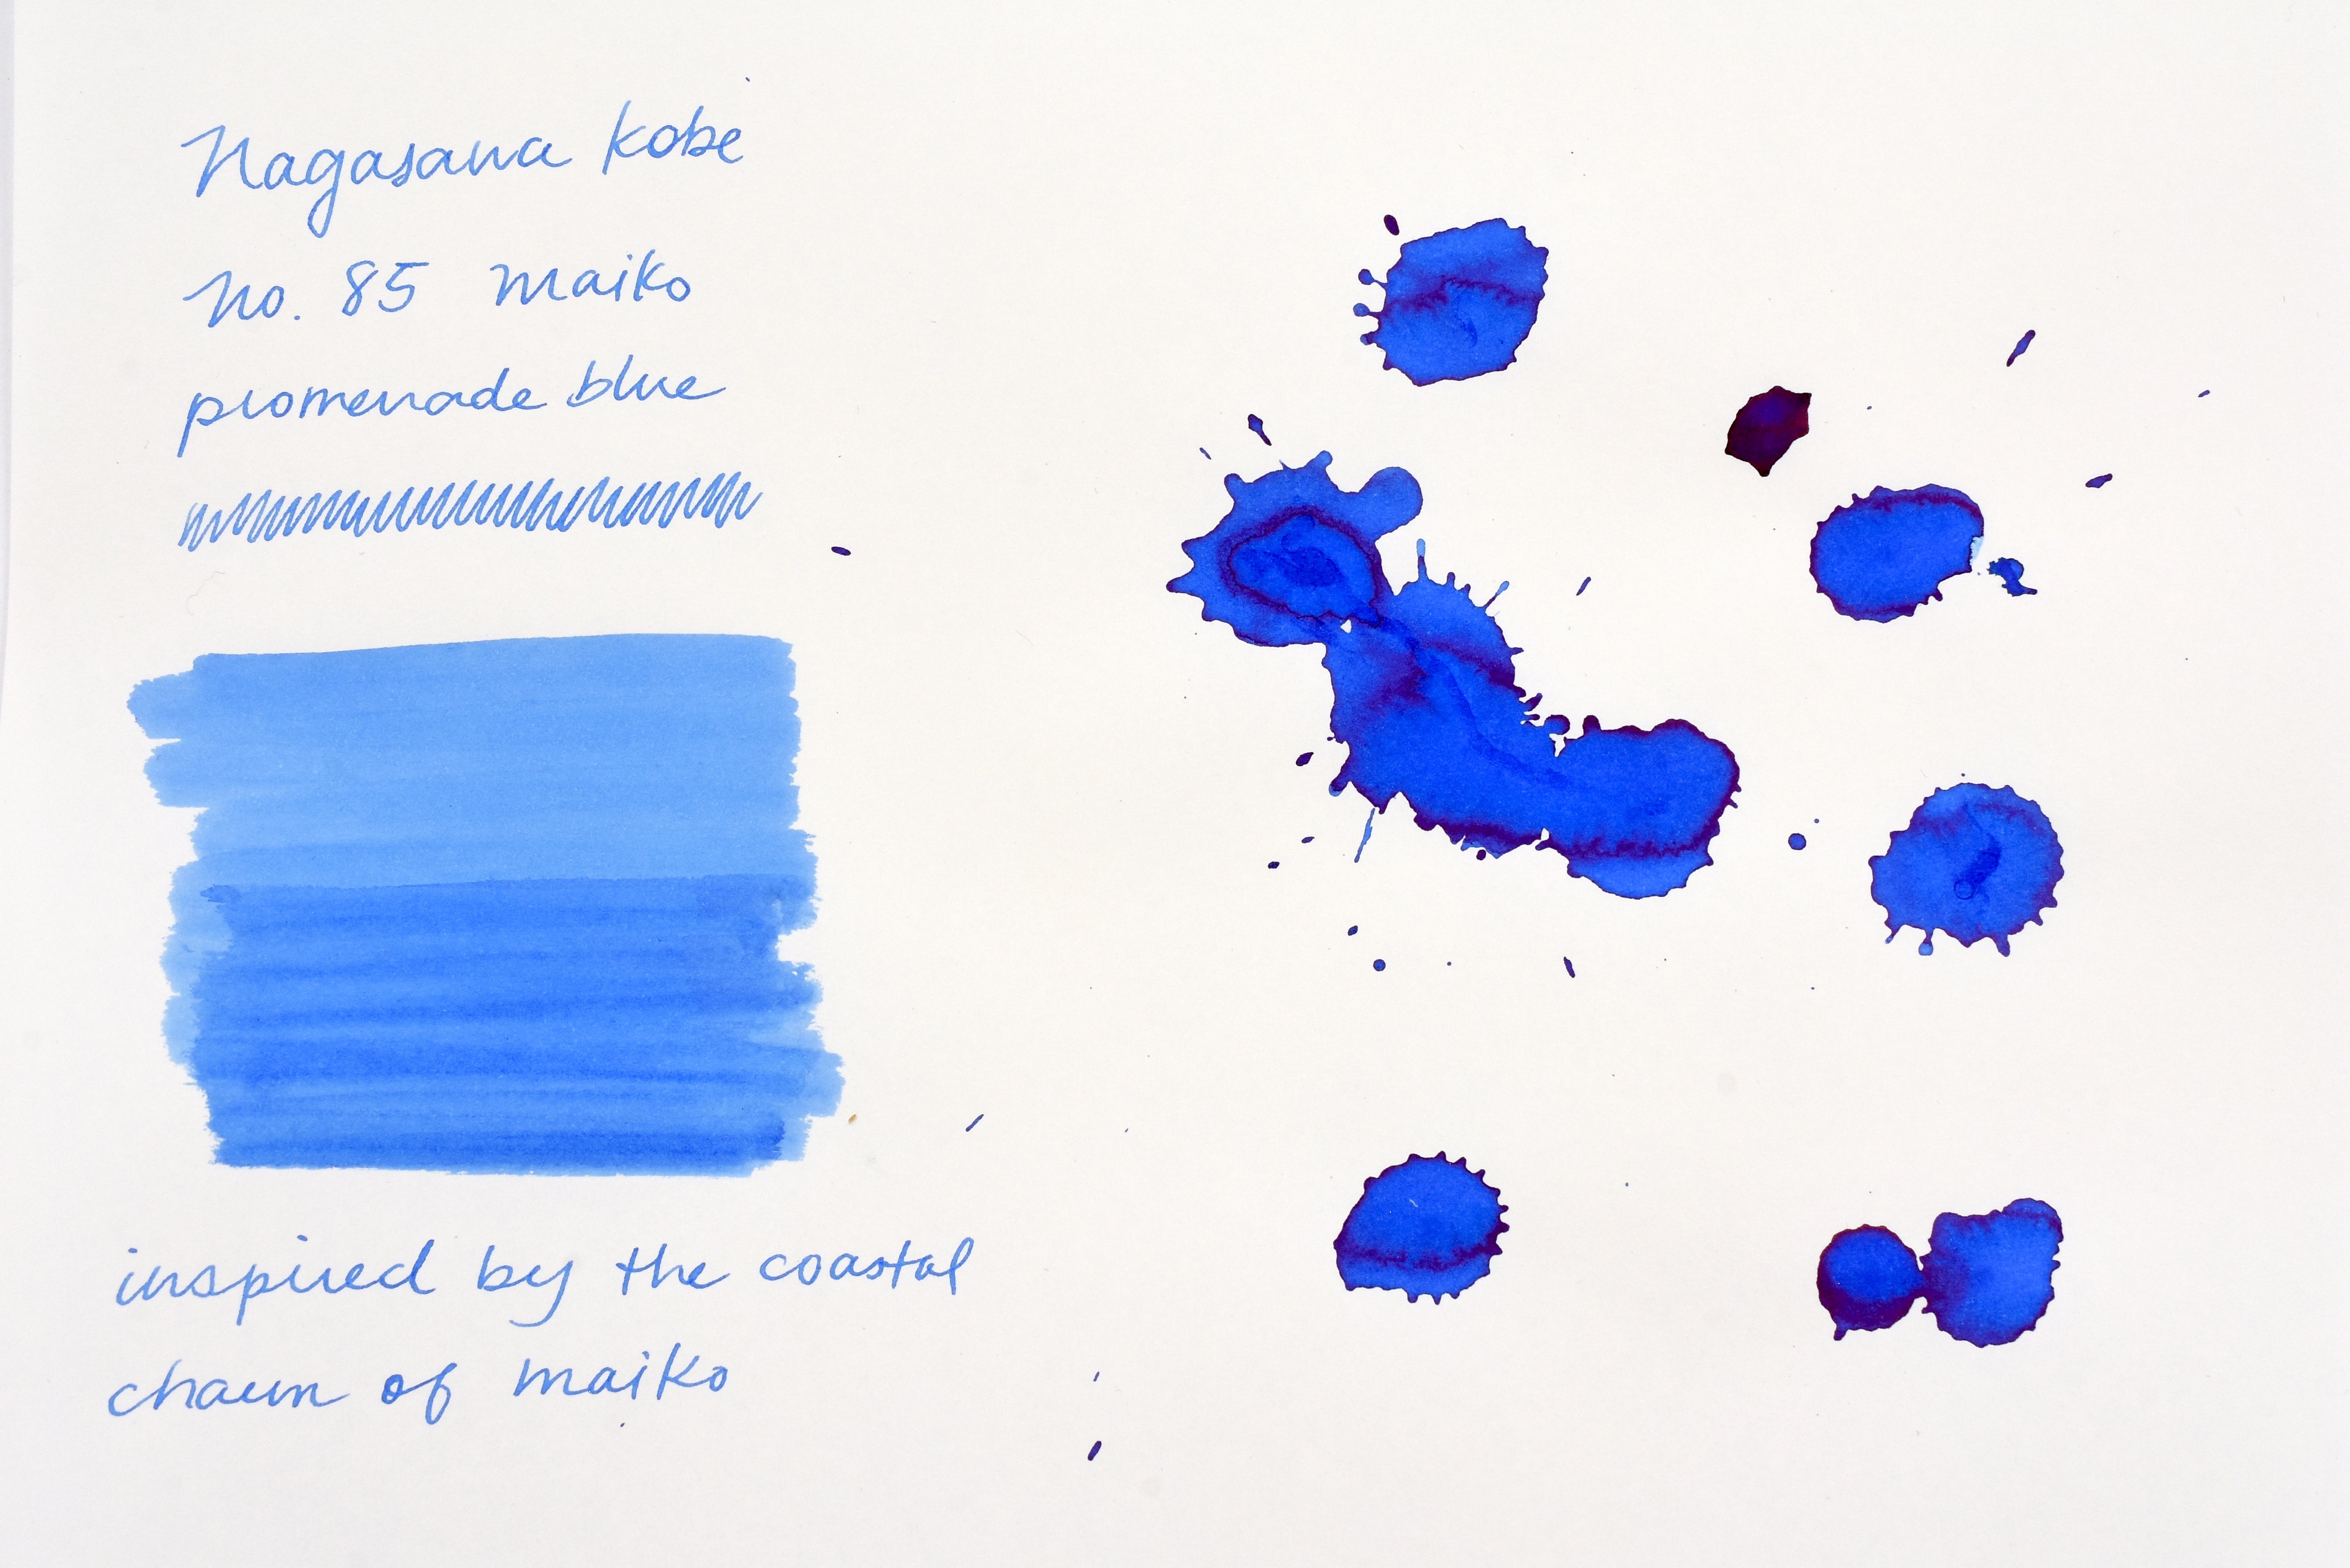 Nagasawa Kobe
No. 85 maiko
promenade blue
inspired by the coastal
charm of maiko